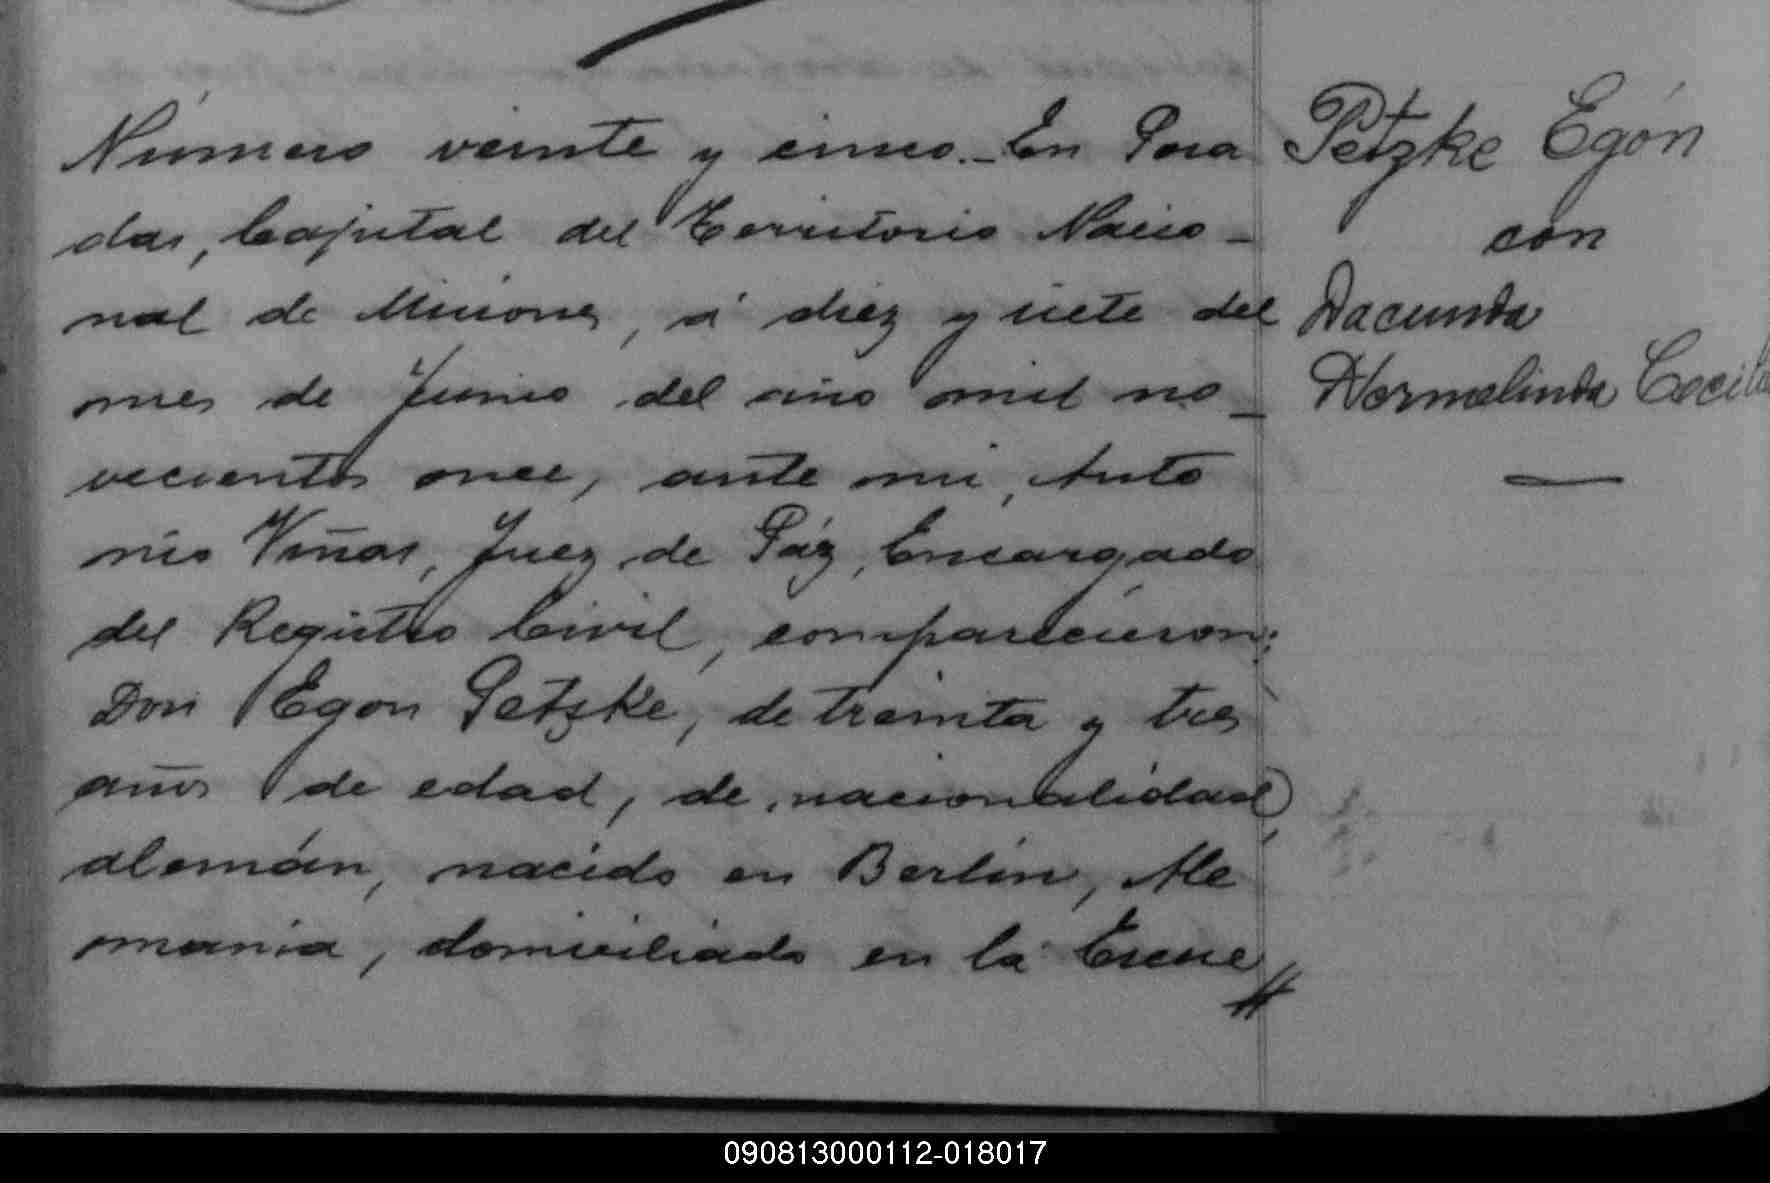 Número veinte y cinco.- En Posa
das, Capital del Territorio Nacio-
nal de Misiones, á diez y siete del
mes de Junio del año mil no-
vecientos once, ante mi, Anto
nio Viñas, Juez de Páz, Encargado
del Registro Civil, comparecieron:
Don Egon Petzke, de treinta y tres
años de edad, de nacionalidad
alemán, nacido en Berlin, Ale
mania, domiciliado en la Escue
Petzke Egón
con
Dacunda
Hermelinda Cecilia
090813000112-018017